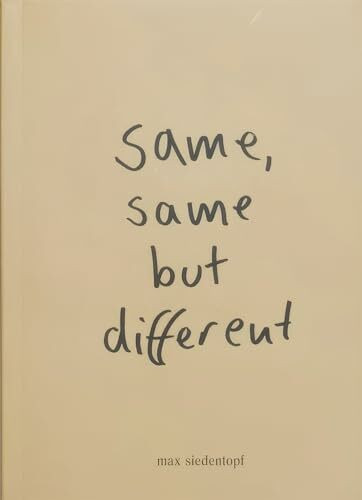 same,
same
but
different
max siedentopf